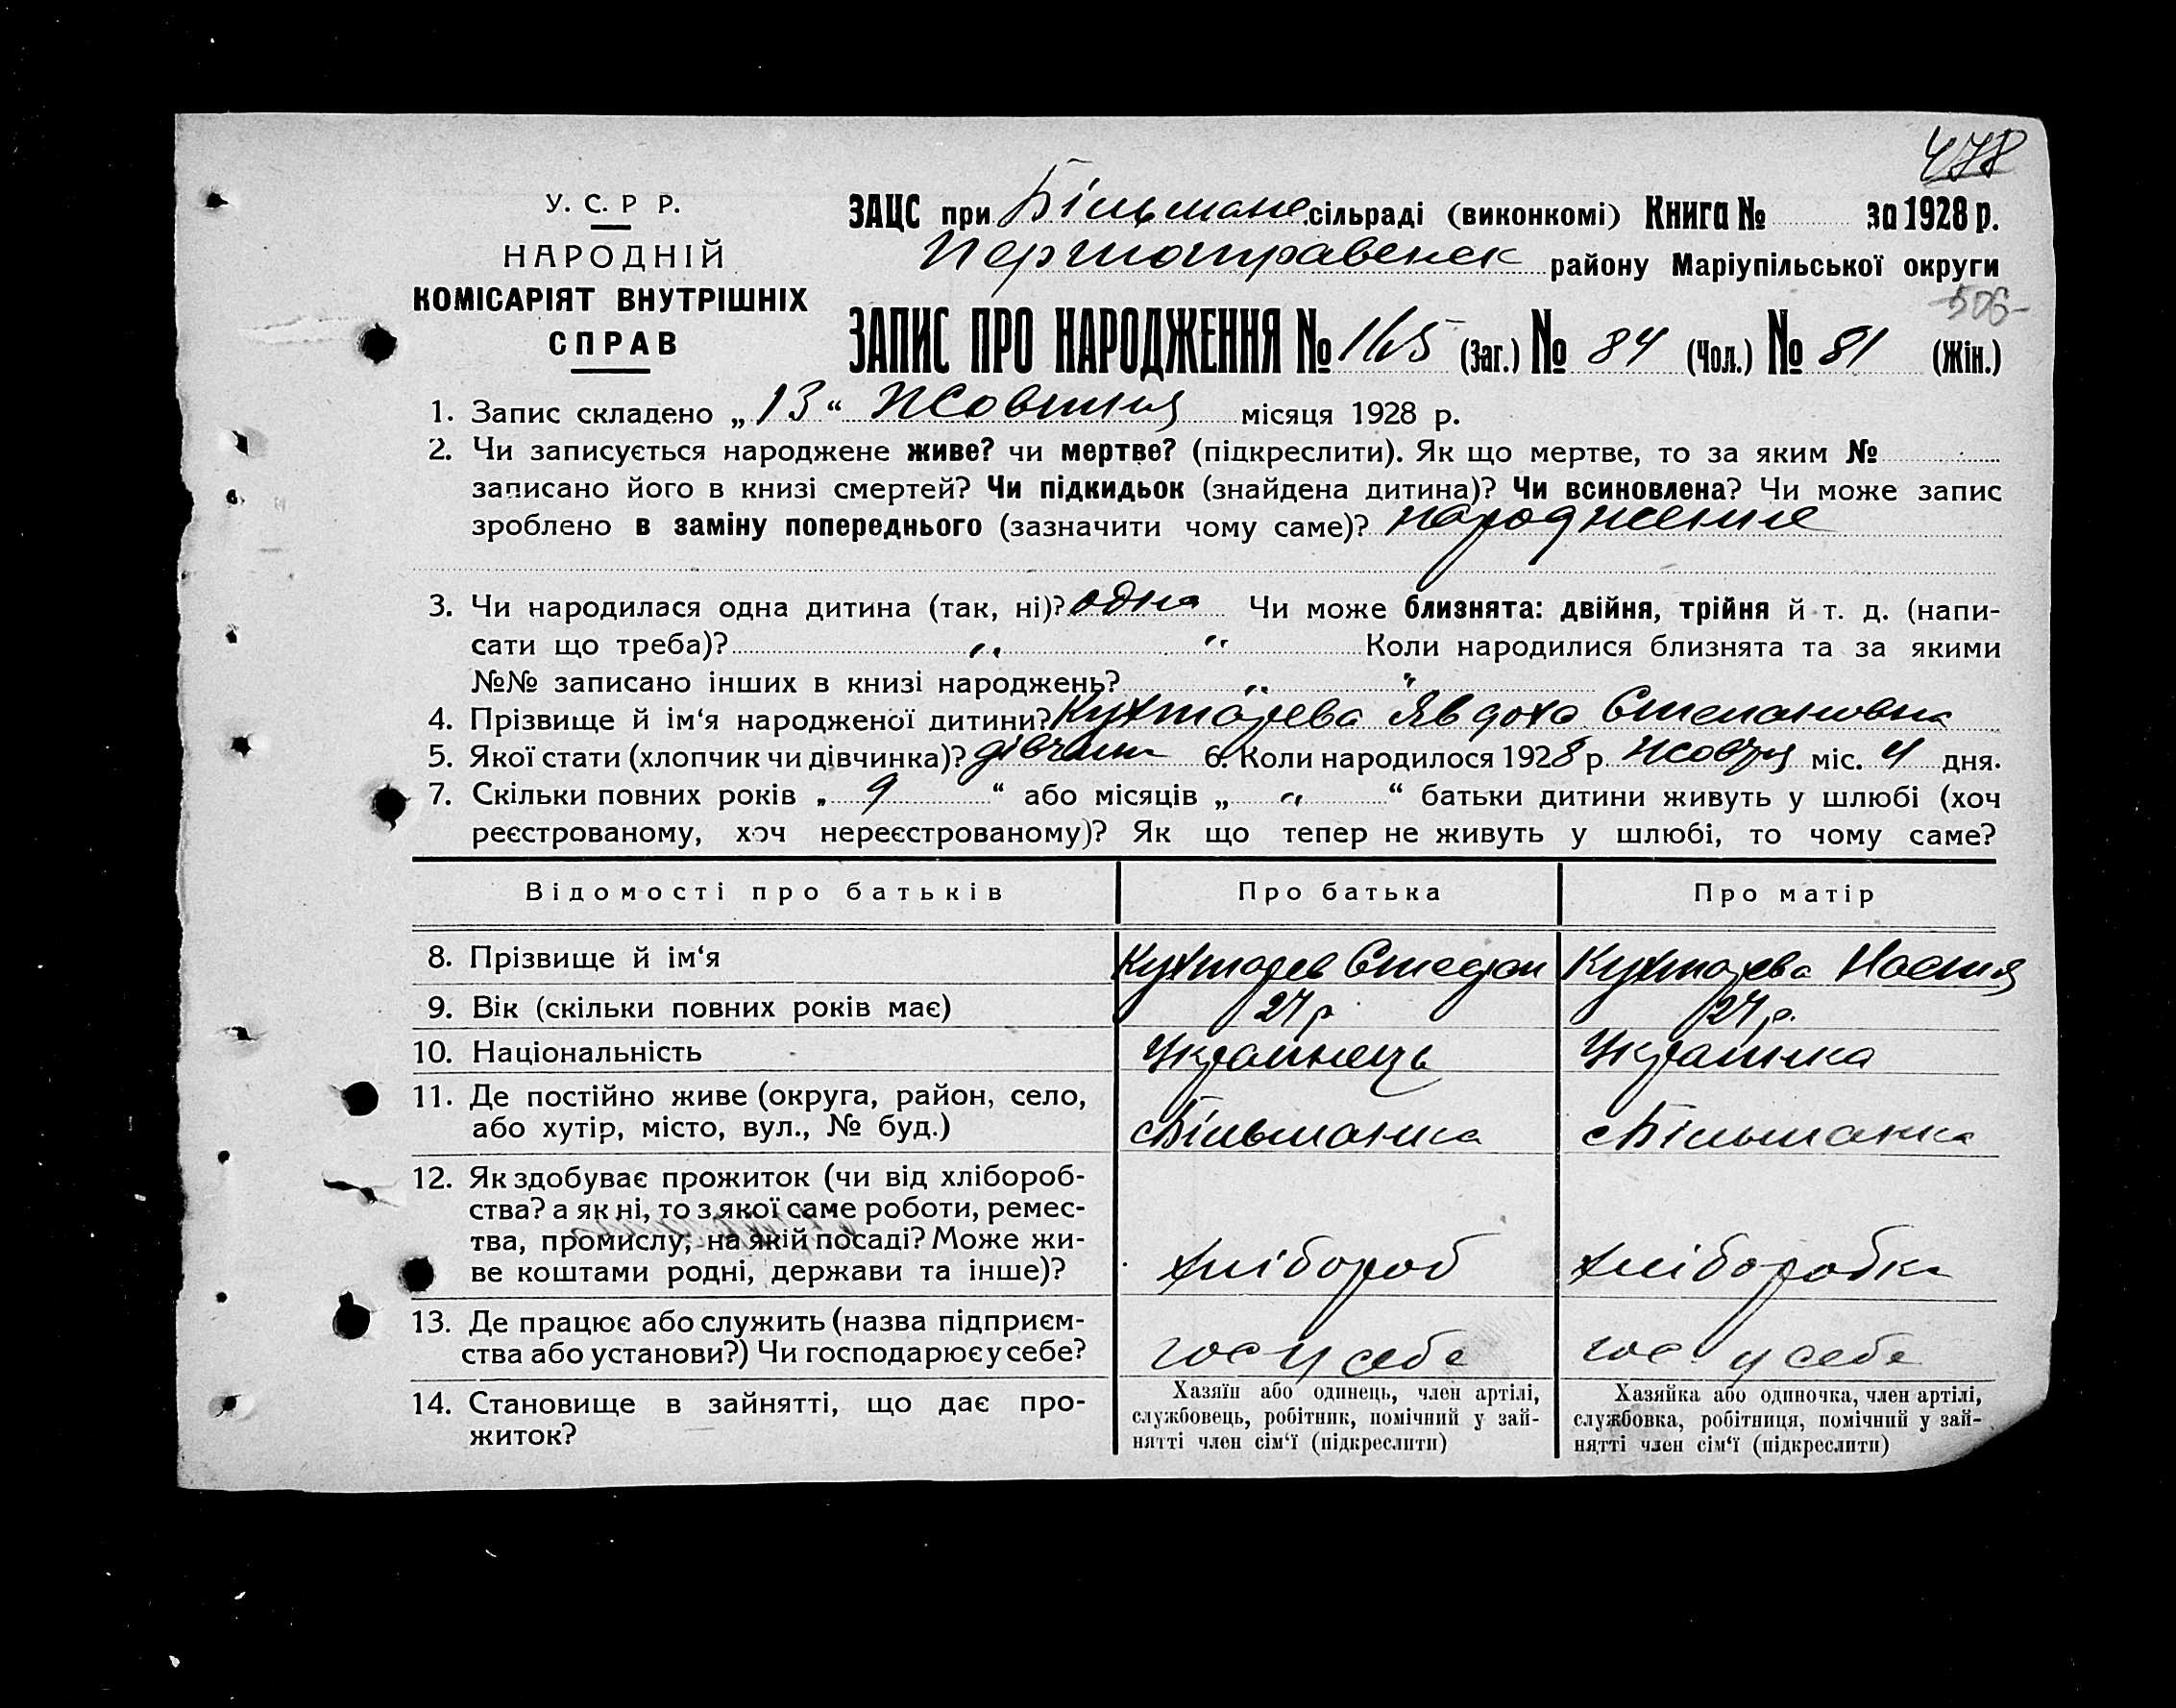 478
У. С. Р Р.
НАРОДНІЙ
КОМІСАРІЯТ ВНУТРІШНІХ
СПРАВ
ЗАЦС при Більмане. сільраді (виконкомі) Книга № за 1928 р.
району Маріупільської округи
506
ЗАПИС ПРО НАРОДЖЕННЯ № 165 (Заг.) № 84 (Чол.) № 81 (Жін.)
1. Запис складено „ 13 “ Жовтня місяця 1928 р.
2. Чи записується народжене живе? чи мертве? (підкреслити). Як що мертве, то за яким №
записано його в книзі смертей? Чи підкидьок (знайдена дитина)? Чи всиновлена? Чи може запис
зроблено в заміну попереднього (зазначити чому саме)? народження
3. Чи народилася одна дитина (так, ні)? одна Чи може близнята: двійня, трійня й т. д. (напи-
сати що треба)? „ “ Коли народилися близнята та за якими
№№ записано інших в книзі народжень? „ “
4. Прізвище й ім‘я народженої дитини? Кухтарева Явдоха Степановна
5. Якої стати (хлопчик чи дівчинка)? 6. Коли народилося 1928 р. міс. 4 дня.
7. Скільки повних років „ 9 “ або місяців „ „ “ батьки дитини живуть у шлюбі (хоч
реєстрованому, хоч нереєстрованому)? Як що тепер не живуть у шлюбі, то чому саме?
Відомості про батьків Про батька Про матір
8. Прізвище й ім‘я Кухтарев Степан Кухтарева Настя
9. Вік (скільки повних років має) 27 р. 27 р.
10. Національність Українець Українка
11. Де постійно живе (округа, район, село,
або хутір, місто, вул., № буд.) с Більманка с Більманка
12. Як здобуває прожиток (чи від хлібороб-
ства? а як ні, то з якої саме роботи, ремес-
тва, промислу, на якій посаді? Може жи-
ве коштами родні, держави та інше)? хлібороб хліборобка
13. Де працює або служить (назва підприєм-
ства або установи?) Чи господарює у себе? гос у себе гос. у себе
14. Становище в зайнятті, що дає про-
житок?
Хазяїн або одинець, член артілі,
службовець, робітник, помічний у зай-
нятті член сім‘ї (підкреслити)
Хазяйка або одиночка, член артілі,
службовка, робітниця, помічний у зай-
нятті член сім‘ї (підкреслити)